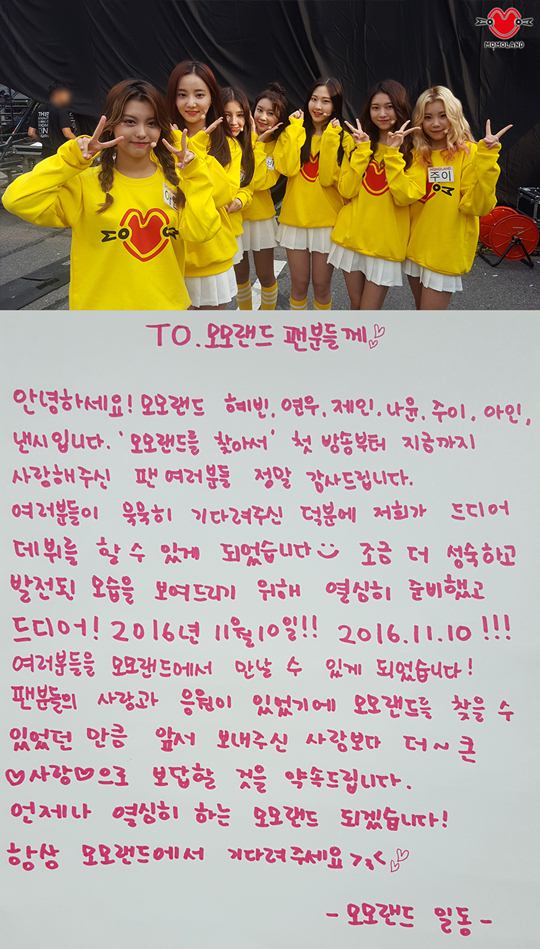 MOMOLAND
주이
TO. 모모랜드 팬분들께♡
안녕하세요! 모모랜드 혜빈, 연우, 제인, 나윤, 주이, 아인,
낸시입니다. '모모랜드를 찾아서' 첫 방송부터 지금까지
사랑해주신 팬 여러분들 정말 감사드립니다.
여러분들이 묵묵히 기다려주신 덕분에 저희가 드디어
데뷔를 할 수 있게 되었습니다 조금 더 성숙하고
발전된 모습을 보여드리기 위해 열심히 준비했고
드디어! 2016년 11월 10일!! 2016.11.10 !!!
여러분들을 모모랜드에서 만날 수 있게 되었습니다!
팬분들의 사랑과 응원이 있었기에 모모랜드를 찾을 수
있었던 만큼 앞서 보내주신 사랑보다 더~ 큰
♡사랑♡으로 보답할 것을 약속드립니다.
언제나 열심히 하는 모모랜드 되겠습니다!
항상 모모랜드에서 기다려주세요 >3<♡
- 모모랜드 일동 -